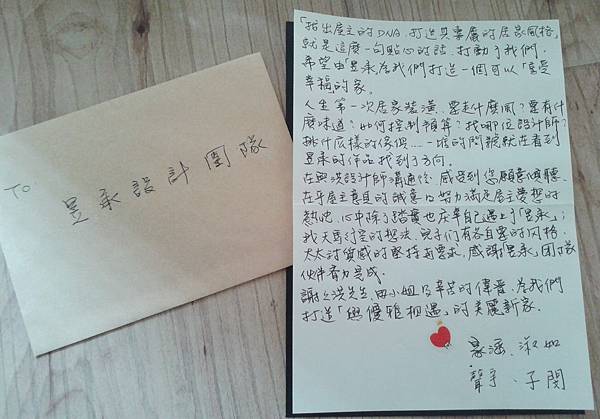 To
昱承設計團隊
「抓出屋主的DNA,打造與專屬的居家風格」
就是這麼一句點心的話,打動了我們,
希望由「昱承」為我們打造一個可以「享受
幸福」的家。
人生第一次居家裝潢,要走什麼風?要有什
麼味道?如何控制預算?找哪位設計師?
挑什麼樣的傢俱……一堆的問號就在看到
昱承的作品找到了方向。
在與洪設計師溝通後,感受到您願意傾聽、
在乎屋主意見的誠意及努力滿足屋主夢想的
熱忱,心中除了踏實也慶幸自己遇上了「昱承」;
我天馬行空的想法、兒子们有各自要的风格、
太太对質感的堅持与要求,感謝「昱承」团隊
伙伴齊力完成。
謝謝洪先生、田小姐及辛苦的偉晉,為我們
打造「與優雅相遇」的美麗新家。
淑如
子閔